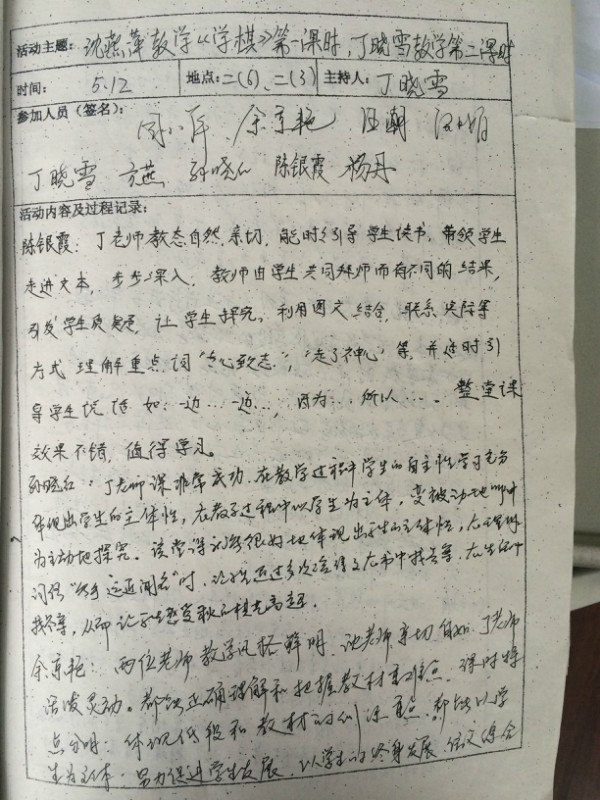 活动主题：沈燕萍教学《学棋》第一课时，丁晓雪教学第二课时
时间：5.12 地点：二(6)、二(3) 主持人：丁晓雪
参加人员（签名）：
余京艳
丁晓雪 方燕 孙晓红 陈银霞 杨丹
活动内容及过程记录：
陈银霞：丁老师教态自然，亲切，能时时引导学生读书，带领学生
走进文本，步步深入，教师由学生共同拜师而有不同的结果，
引发学生质疑，让学生探究。利用图文结合，联系实际等
方式理解重点词“专心致志”，“走了神心”等，并适时引
导学生说话如：一边…一边…，因为…所以…。整堂课
效果不错，值得学习。
孙晓红：丁老师课非常成功，在教学过程中学生的自主性学习充分
体现出学生的主体性，在教学过程中以学生为主体，变被动地
为主动地探究。该堂课 很好地体现出学生的主体性，在理解
词语 时，让学生通过多次 读课文在书中找答案，在生活中
找答案，从而让学生感受
余京艳：两位老师教学风格鲜明，沈老师亲切自如，丁老师
活泼灵动。都能正确理解和把握教材重难点，课时特
点分明，体现低段和教材 重点，都能以学
生为主体，努力促进学生发展，以学生的终身发展，